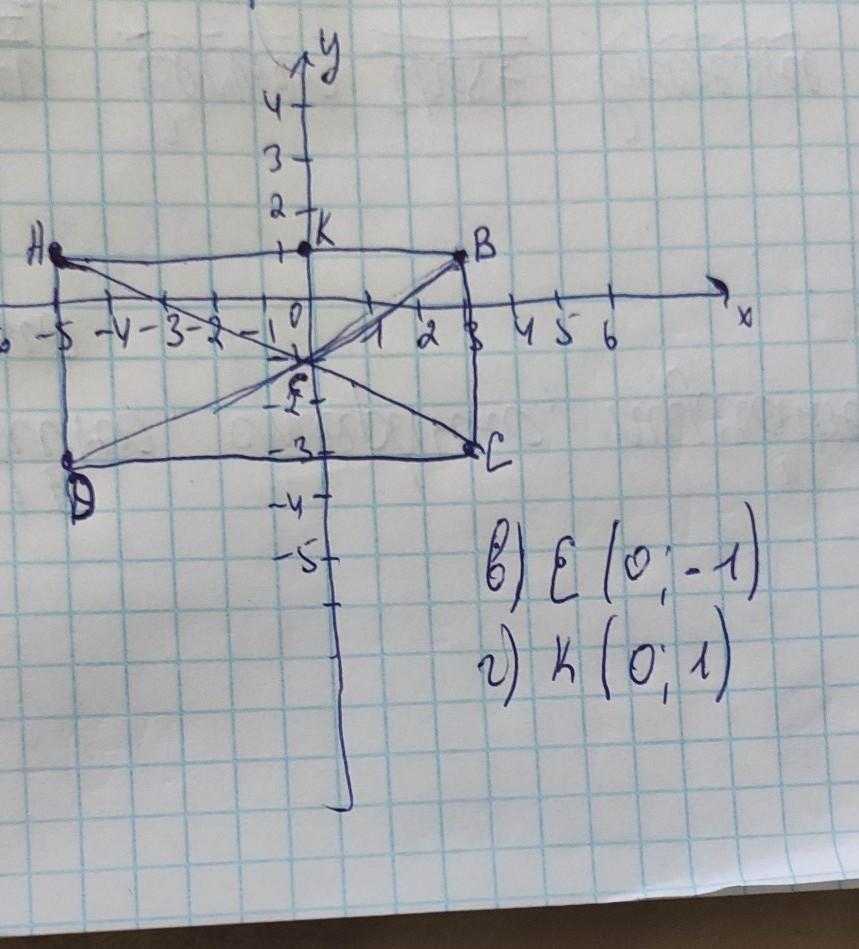 y
4
3
2
A 1 K B
0 x
-5 -4 -3 -2 -1 1 2 3 4 5 6
-1
E
-2
-3 C
D
-4
-5
в) E (0; -1)
г) K (0; 1)